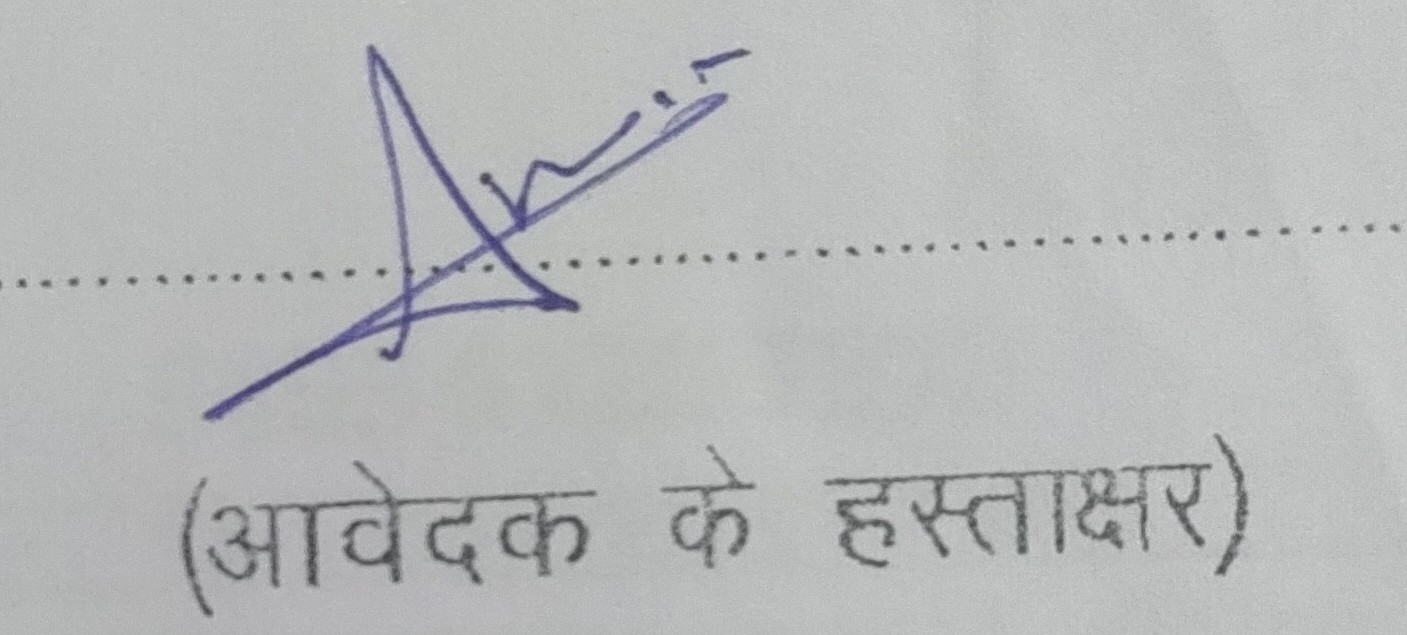 (आवेदक के हस्ताक्षर)